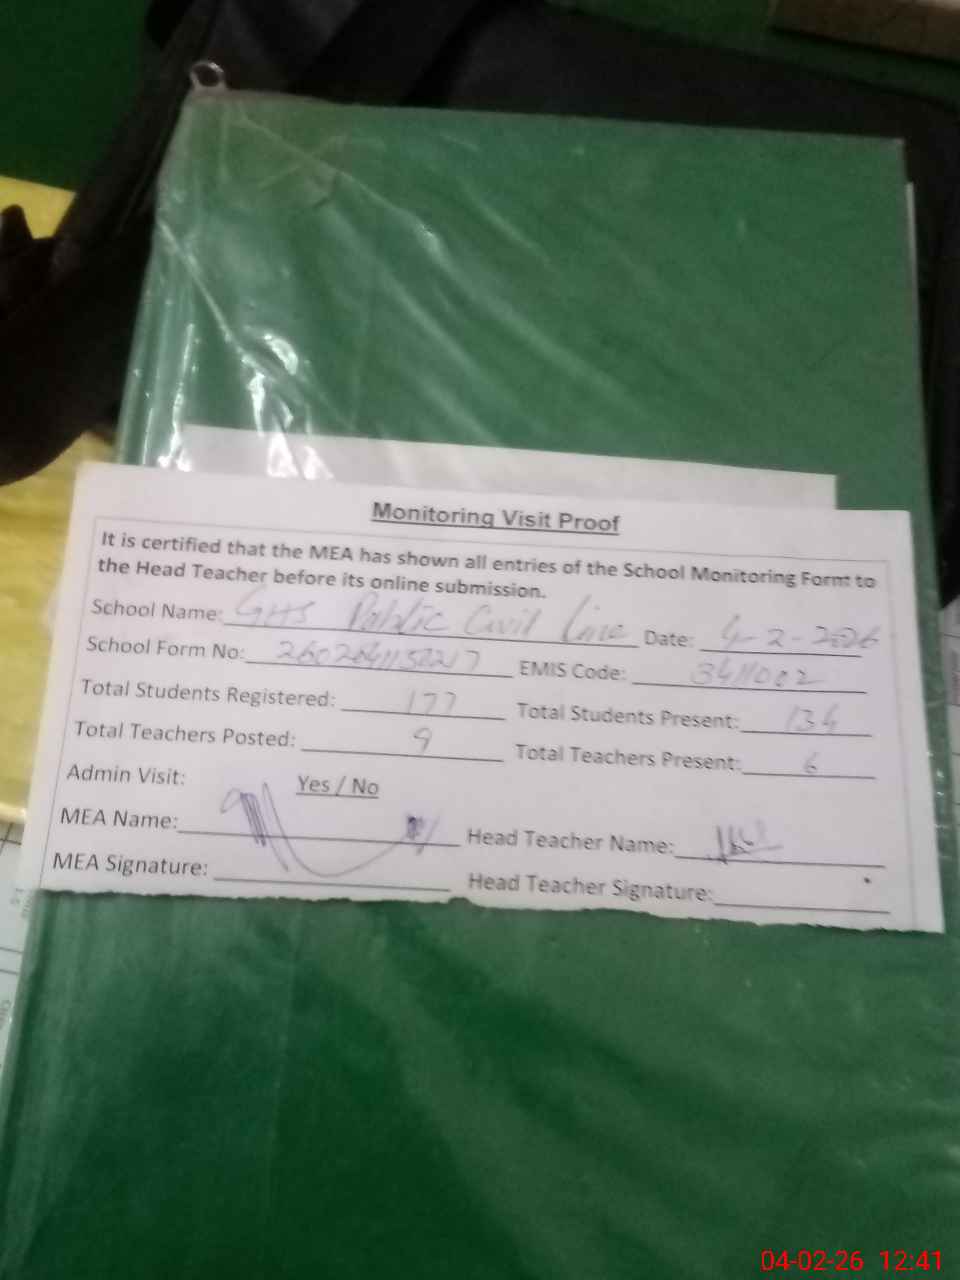 Monitoring Visit Proof
It is certified that the MEA has shown all entries of the School Monitoring Form to
the Head Teacher before its online submission.
School Name: GHS Public Civil Line Date: 4-2-2026
School Form No: EMIS Code: 3411002
Total Students Registered: 177 Total Students Present: 134
Total Teachers Posted: 9 Total Teachers Present: 6
Admin Visit: Yes / No
MEA Name: Head Teacher Name:
MEA Signature: Head Teacher Signature:
04-02-26 12:41